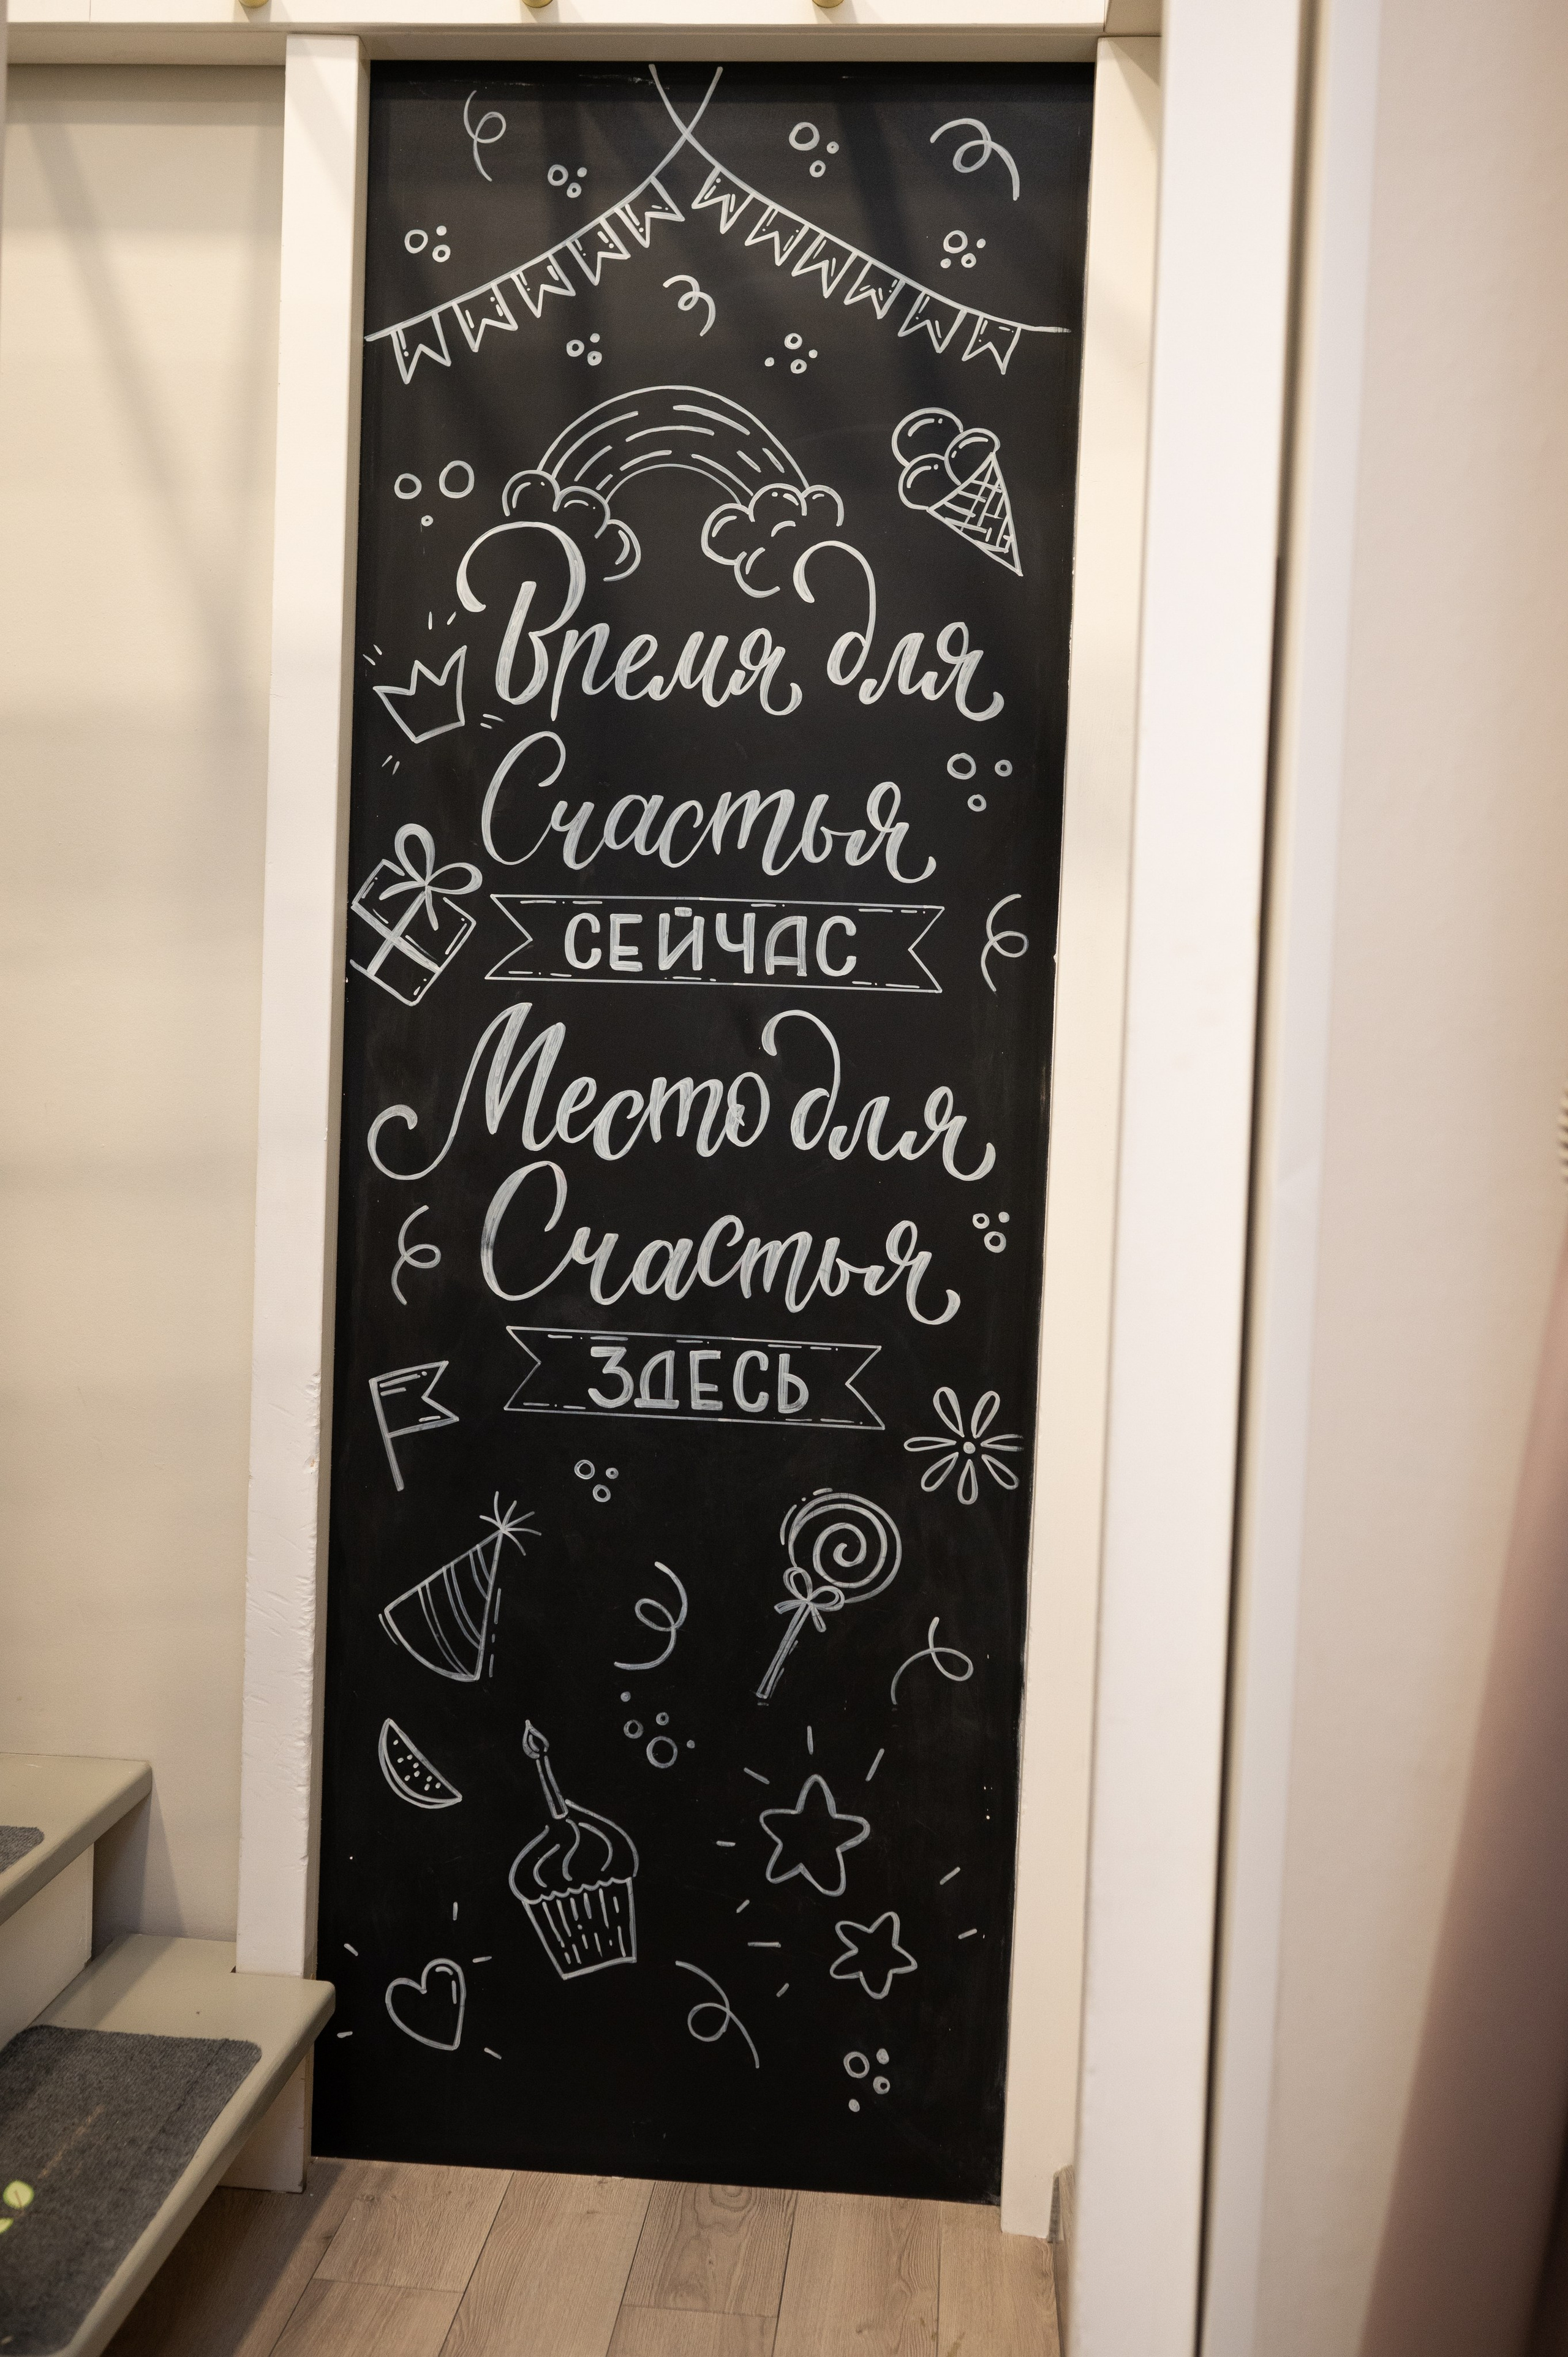 Время для
Счастья
СЕЙЧАС
Место для
Счастья
ЗДЕСЬ